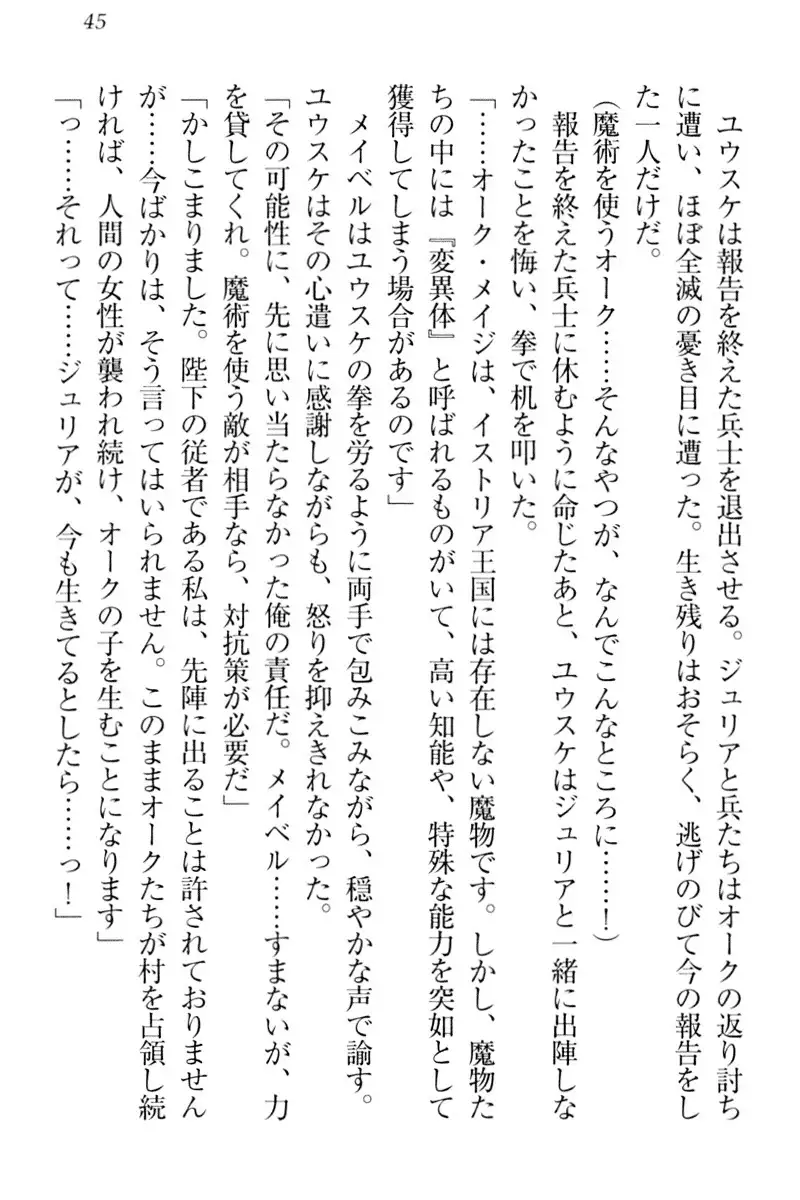 45
ユウスケは報告を終えた兵士を退出させる。ジュリアと兵たちはオークの返り討ち
に遭い、ほぼ全滅の憂き目に遭った。生き残りはおそらく、逃げのびて今の報告をし
た一人だけだ。
(魔術を使うオーク……そんなやつが、なんでこんなところに……！)
報告を終えた兵士に休むように命じたあと、ユウスケはジュリアと一緒に出陣しな
かったことを悔い、拳で机を叩いた。
「……オーク・メイジは、イストリア王国には存在しない魔物です。しかし、魔物た
ちの中には『変異体』と呼ばれるものがいて、高い知能や、特殊な能力を突如として
獲得してしまう場合があるのです」
メイベルはユウスケの拳を労るように両手で包みこみながら、穏やかな声で諭す。
ユウスケはその心遣いに感謝しながらも、怒りを抑えきれなかった。
「その可能性に、先に思い当たらなかった俺の責任だ。メイベル……すまないが、力
を貸してくれ。魔術を使う敵が相手なら、対抗策が必要だ」
「かしこまりました。陛下の従者である私は、先陣に出ることは許されておりません
が……今ばかりは、そう言ってはいられません。このままオークたちが村を占領し続
ければ、人間の女性が襲われ続け、オークの子を生むことになります」
「っ……それって……ジュリアが、今も生きてるとしたら……っ！」